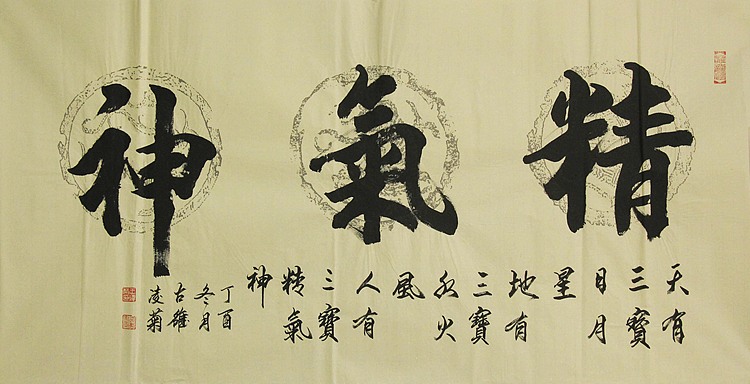 精氣神
天有
三寶
日月
星
地有
三寶
水火
風
人有
三寶
精氣
神
丁酉
冬月
古雒
凌菊